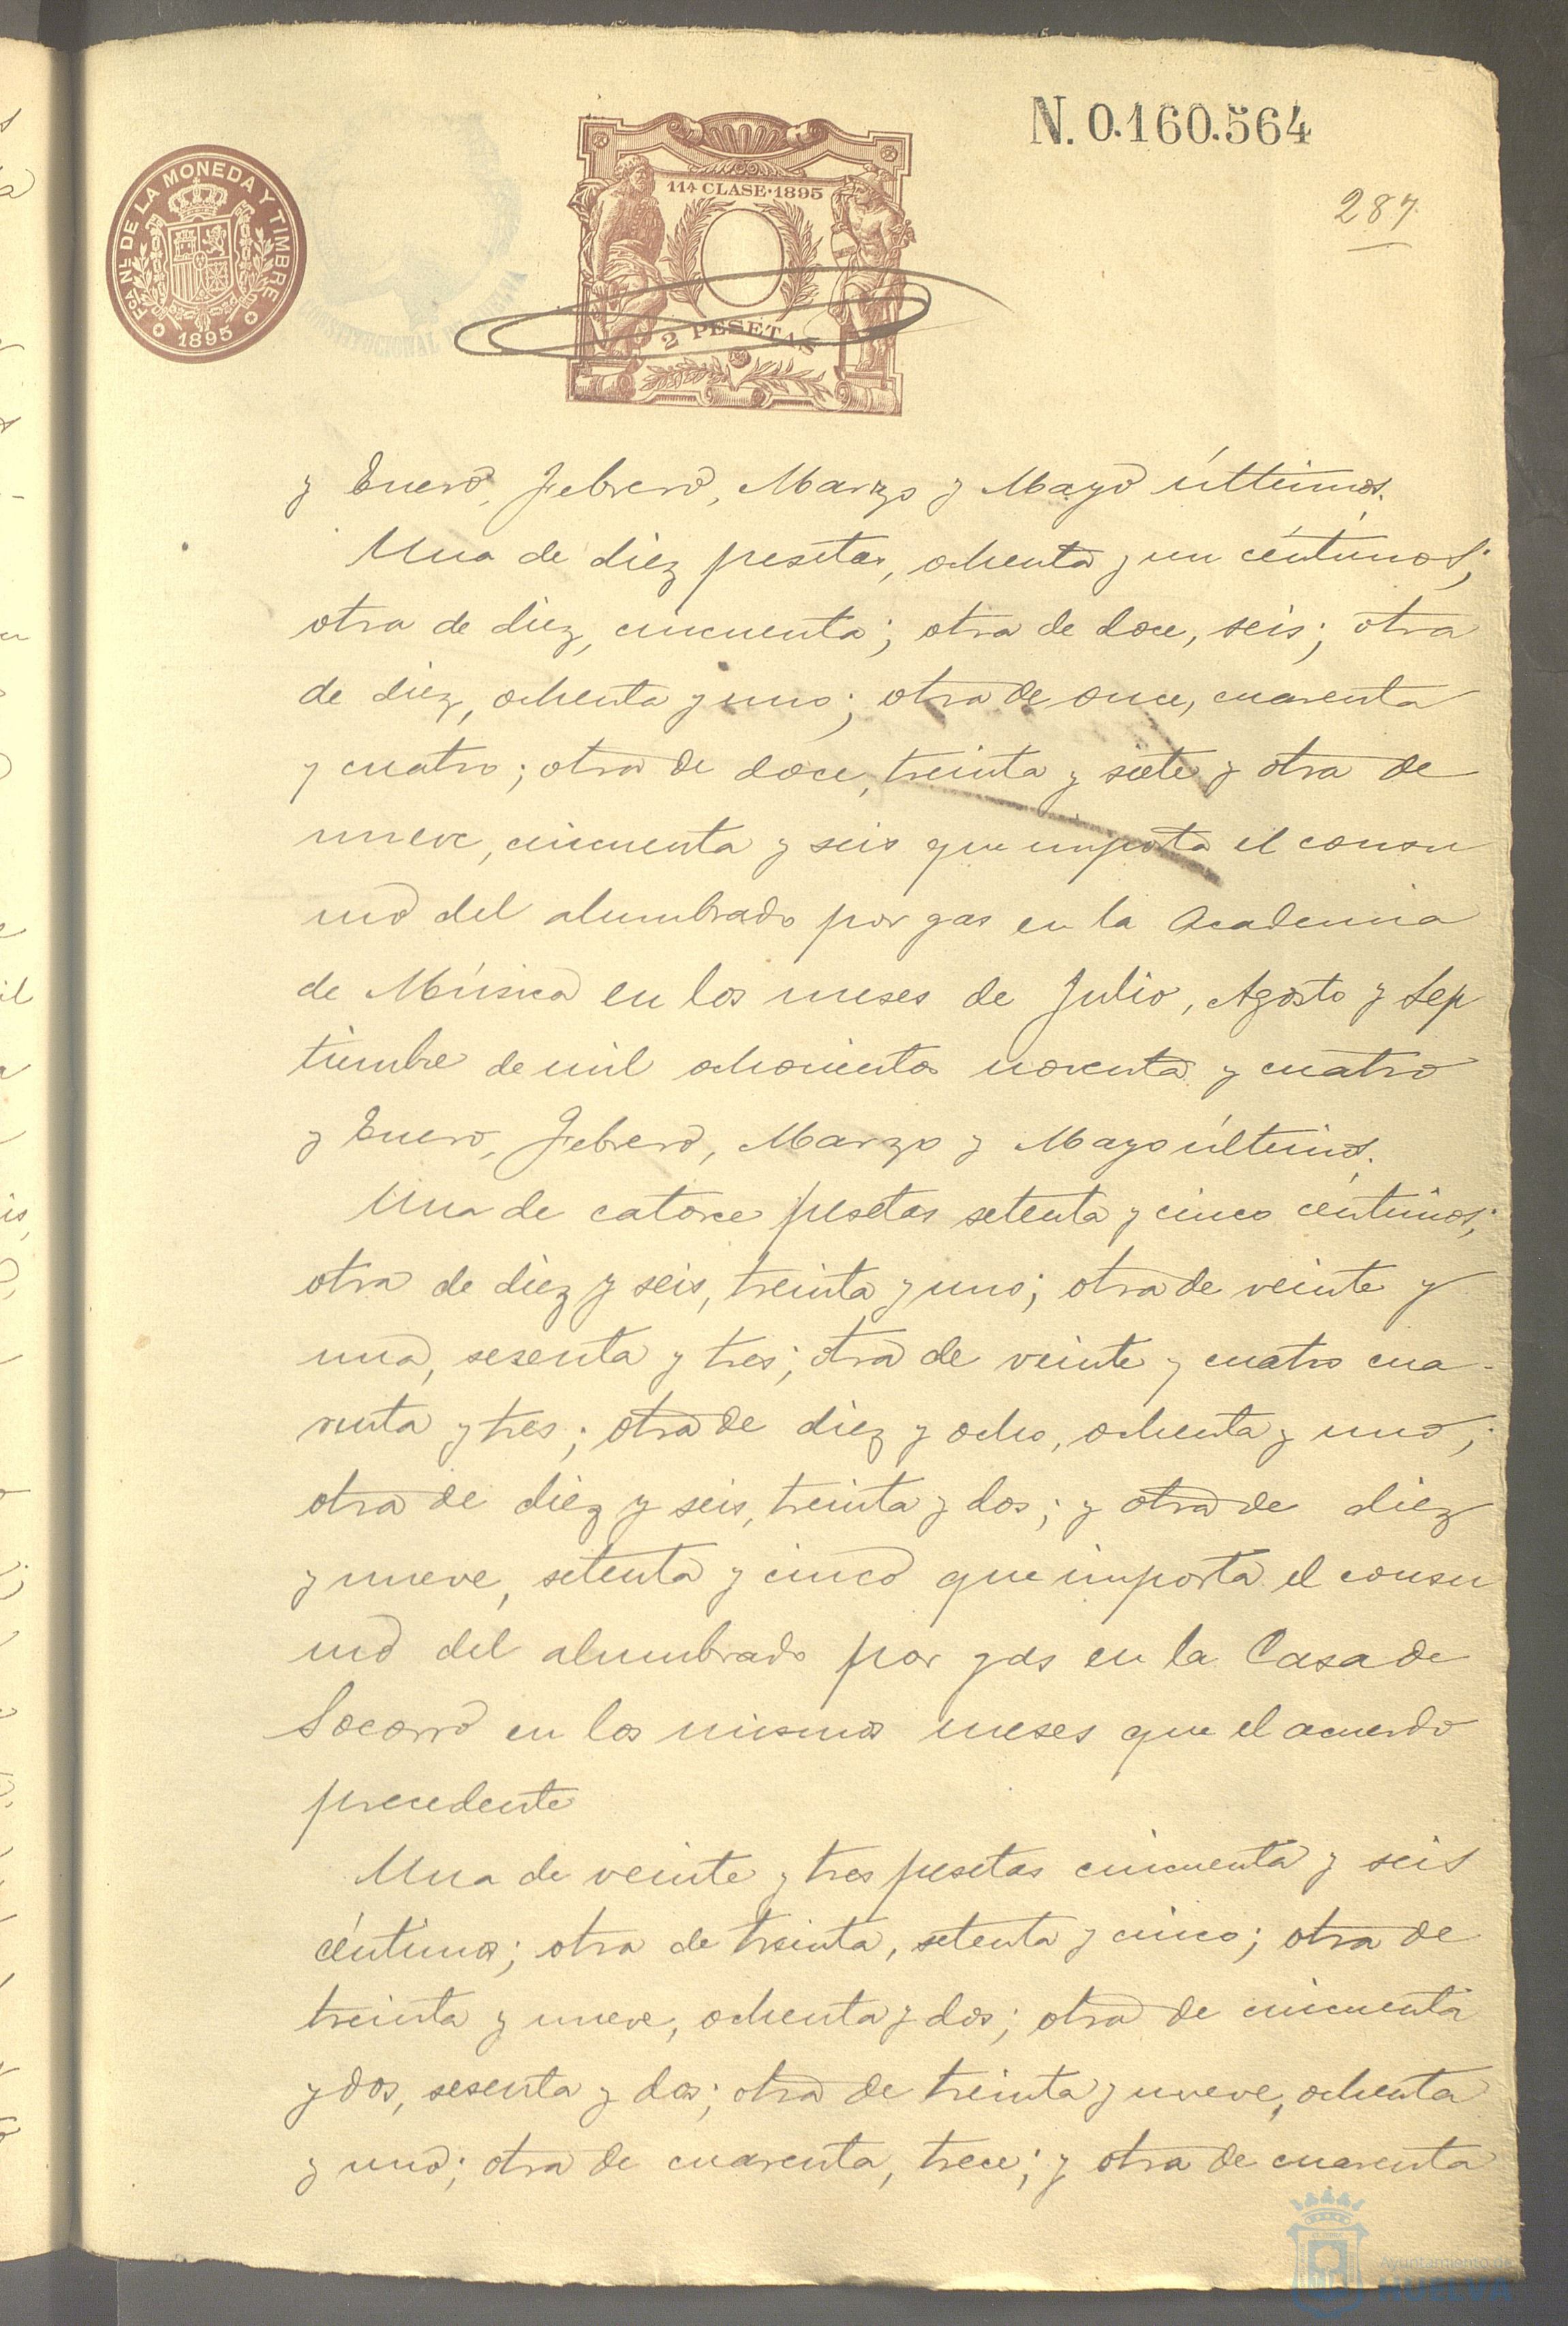 N. 0.160.564
287.
FCA. NL. DE LA MONEDA Y TIMBRE
1895
11ª CLASE·1895
2 PESETAS
STITUCIONAL
y Enero, Febrero, Marzo y Mayo últtimos.
Una de diez pesetas, ochenta y un céntimos;
otra de diez, cincuenta; otra de doce, seis; otra
de diez, ochenta y uno; otra de once, cuarenta
y cuatro; otra de doce, treinta y siete y otra de
nueve, cincuenta y seis que importa el consu
mo del alumbrado por gas en la Academia
de Música en los meses de Julio, Agosto y Sep
tiembre de mil ochocientos noventa y cuatro
y Enero, Febrero, Marzo y Mayo últimos.
Una de catorce pesetas setenta y cinco céntimos;
otra de diez y seis, treinta y uno; otra de veinte y
una, sesenta y tres; otra de veinte y cuatro cua-
renta y tres; otra de diez y ocho, ochenta y uno;
otra de diez y seis, treinta y dos; y otra de diez
y nueve, setenta y cinco que importa el consu
mo del alumbrado por gas en la Casa de
Socorro en los mismos meses que el acuerdo
precedente
Una de veinte y tres pesetas cincuenta y seis
céntimos; otra de treinta, setenta y cinco; otra de
treinta y nueve, ochenta y dos; otra de cincuenta
y dos, sesenta y dos; otra de treinta y nueve, ochenta
y uno; otra de cuarenta, trece; y otra de cuarenta
Ayuntamiento de
HUELVA